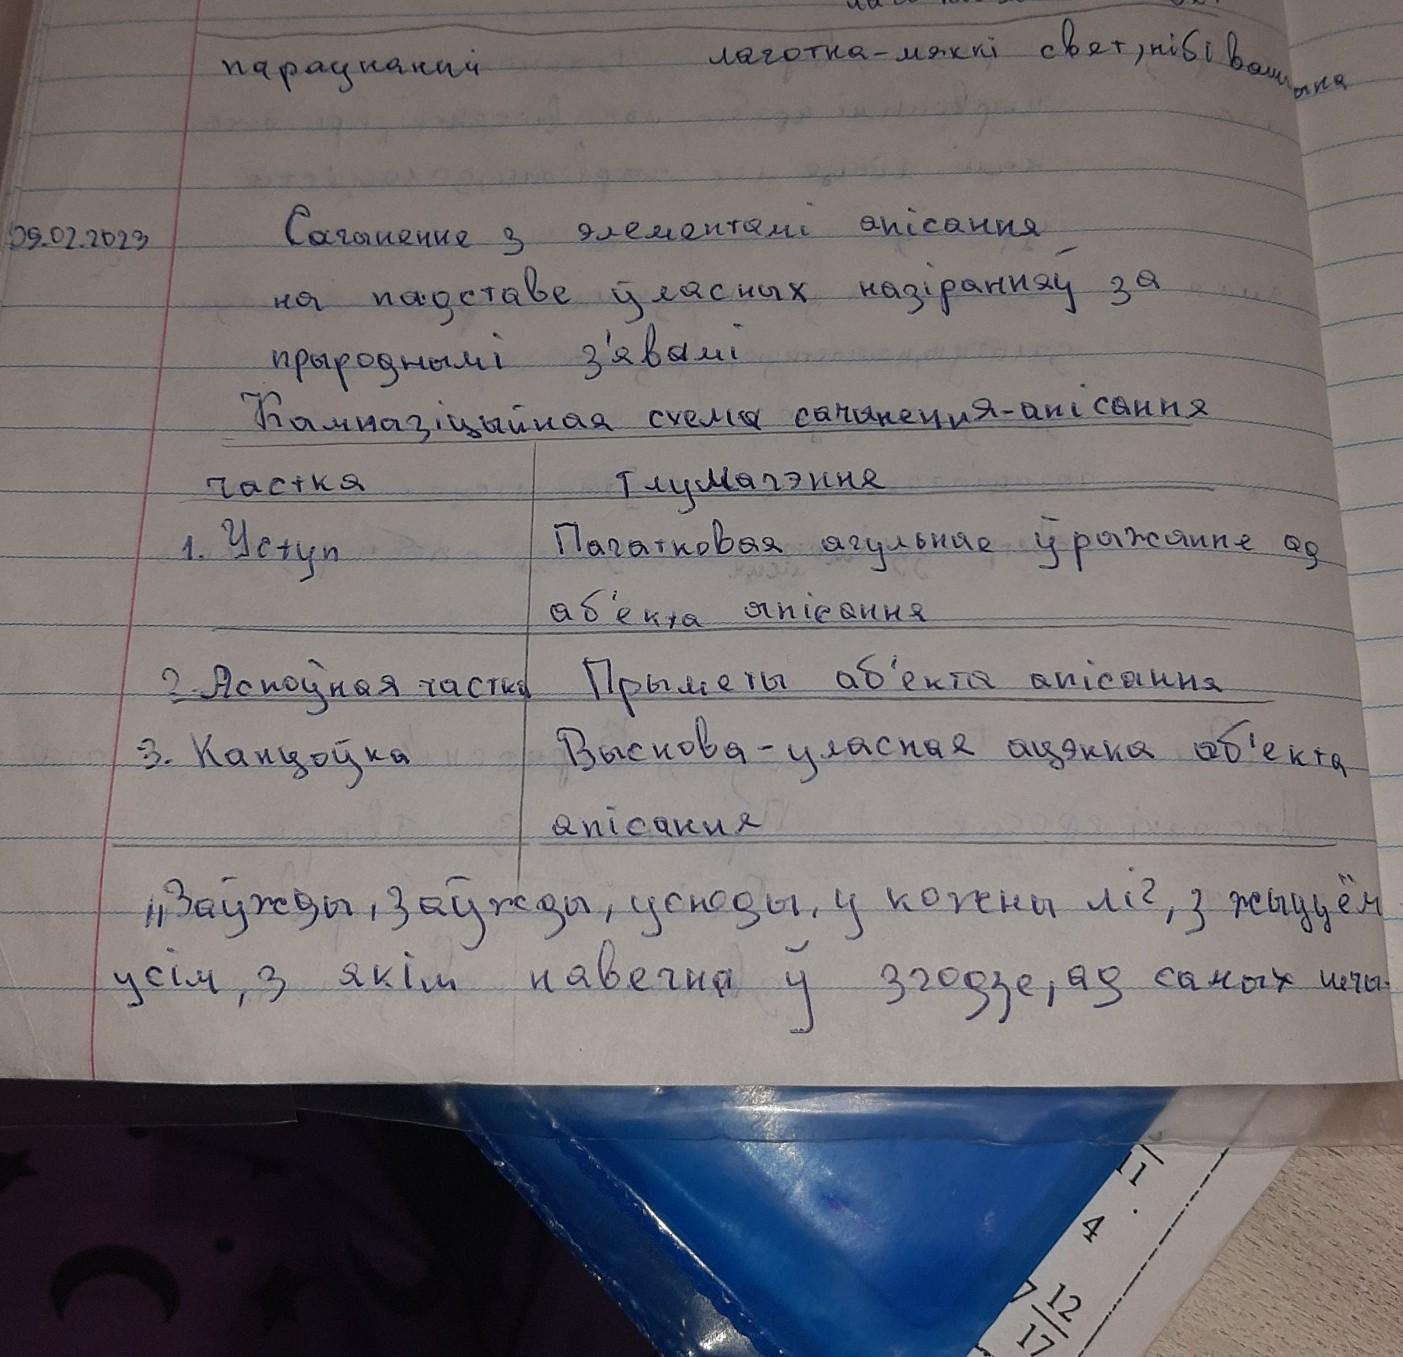 параўнанні лаготна-мяккі свет, нібі вашына
09.02.2023 Сачыненне з элементамі апісання
на падставе ўласных назіранняў за
прыроднымі з'явамі
Кампазіцыйная схема сачынення-апісання
частка Тлумачэнне
1. Уступ Пачатковая агульнае ўражанне ад
аб'екта апісання
2. Асноўная частка Прыметы аб'екта апісання
3. Канцоўка Выснова-уласная ацэнка аб'екта
апісання
„Заўжды, заўжды, усюды, у кожны міг, з жыццём
усім, з якім навечна ў згодзе, ад самых шчы-
11
4
7 12
17